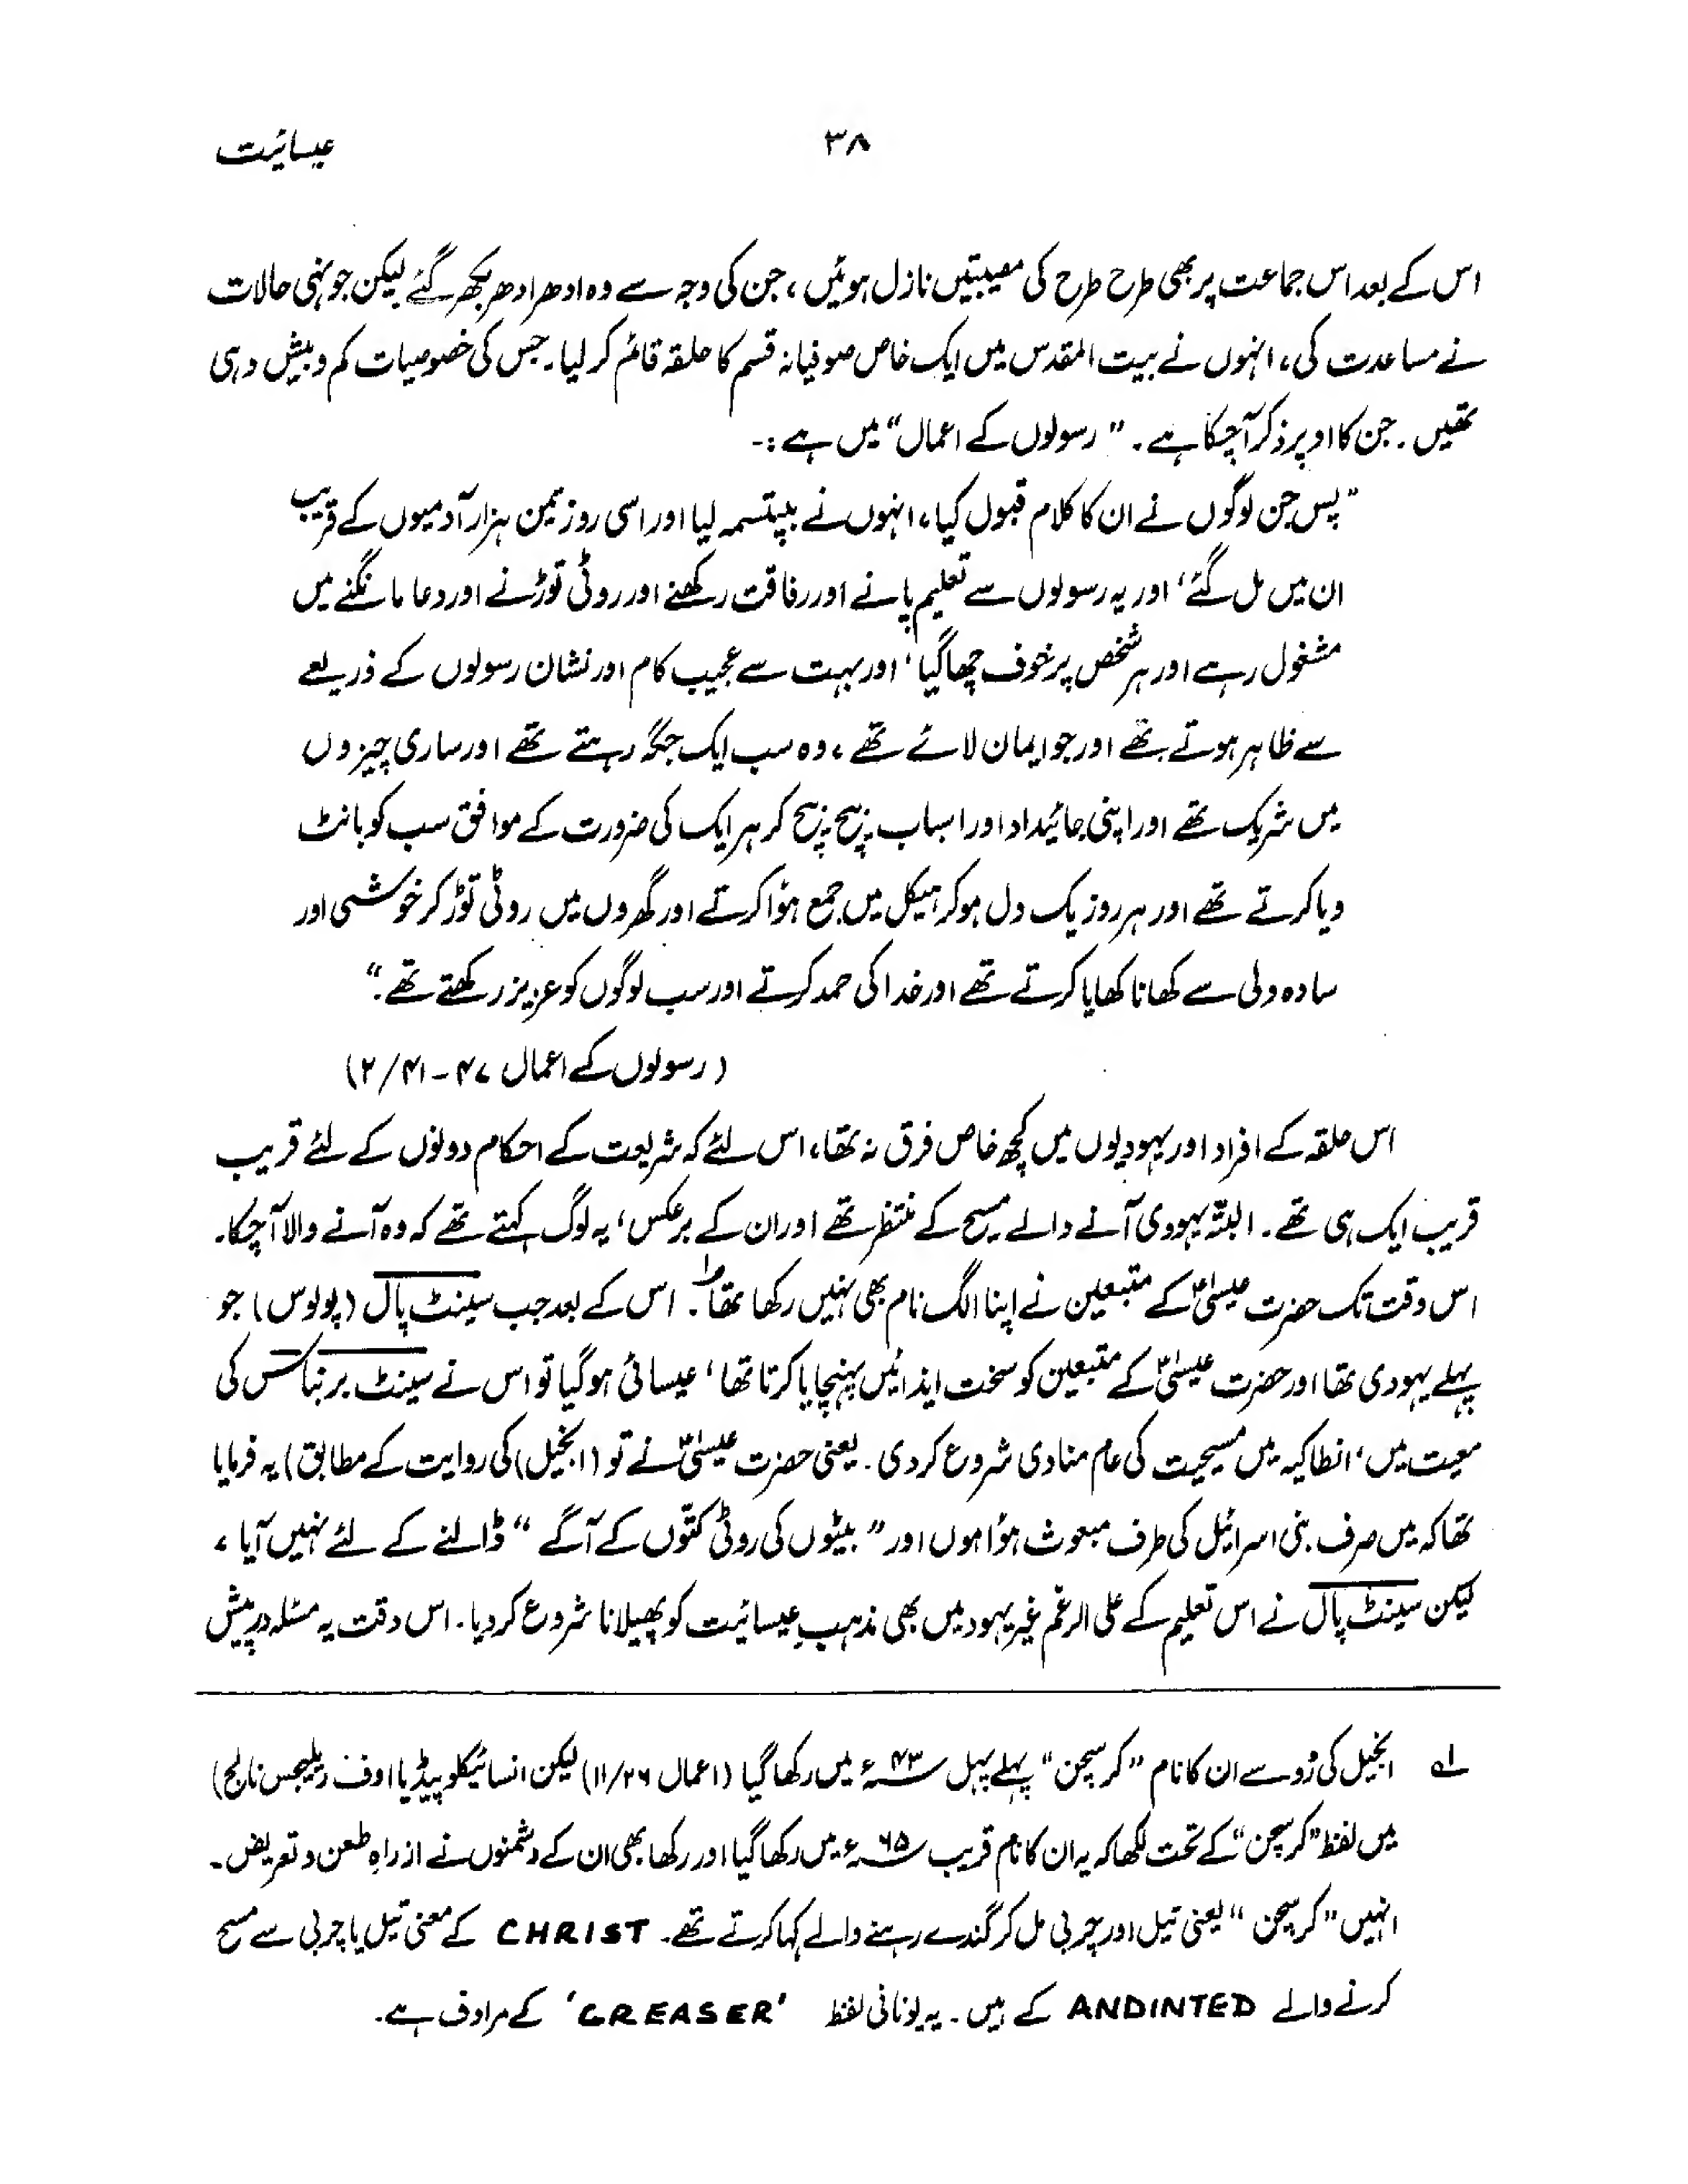 عیسائیت
۳۸
اس کے بعد اس جماعت پر بھی طرح طرح کی مصیبتیں نازل ہوئیں، جن کی وجہ سے وہ ادھر ادھر بکھر گئے لیکن جونہی حالات
نے مساعدت کی، انہوں نے بیت المقدس میں ایک خاص صوفیانہ قسم کا حلقہ قائم کر لیا۔ جس کی خصوصیات کم و بیش وہی
تھیں۔ جن کا اوپر ذکر آچکا ہے۔ ”رسولوں کے اعمال“ میں ہے :-
”پس جن لوگوں نے ان کا کلام قبول کیا، انہوں نے بپتسمہ لیا اور اسی روز تین ہزار آدمیوں کے قریب
ان میں مل گئے‘ اور یہ رسولوں سے تعلیم پانے اور رفاقت رکھنے اور روٹی توڑنے اور دعا مانگنے میں
مشغول رہے اور ہر شخص پر خوف چھا گیا‘ اور بہت سے عجیب کام اور نشان رسولوں کے ذریعے
سے ظاہر ہوتے تھے اور جو ایمان لائے تھے، وہ سب ایک جگہ رہتے تھے اور ساری چیزوں
میں شریک تھے اور اپنی جائیداد اور اسباب بیچ بیچ کر ہر ایک کی ضرورت کے موافق سب کو بانٹ
دیا کرتے تھے اور ہر روز یک دل ہو کر ہیکل میں جمع ہؤا کرتے اور گھروں میں روٹی توڑ کر خوشی اور
سادہ دلی سے کھانا کھایا کرتے تھے اور خدا کی حمد کرتے اور سب لوگوں کو عزیز رکھتے تھے۔“
(رسولوں کے اعمال ۴۷-۲/۴۱)
اس حلقہ کے افراد اور یہودیوں میں کچھ خاص فرق نہ تھا، اس لئے کہ شریعت کے احکام دونوں کے لئے قریب
قریب ایک ہی تھے۔ البتہ یہودی آنے والے مسیح کے منتظر تھے اور ان کے برعکس‘ یہ لوگ کہتے تھے کہ وہ آنے والا آچکا۔
اس وقت تک حضرت عیسیٰؑ کے متبعین نے اپنا الگ نام بھی نہیں رکھا تھا ۱؎۔ اس کے بعد جب سینٹ پال (پولوس) جو
پہلے یہودی تھا اور حضرت عیسیٰؑ کے متبعین کو سخت ایذائیں پہنچایا کرتا تھا‘ عیسائی ہو گیا تو اس نے سینٹ برنباس کی
معیت میں‘ انطاکیہ میں مسیحیت کی عام منادی شروع کر دی۔ یعنی حضرت عیسیٰؑ نے تو (انجیل) کی روایت کے مطابق) یہ فرمایا
تھا کہ میں صرف بنی اسرائیل کی طرف مبعوث ہؤا ہوں اور ”بیٹوں کی روٹی کتّوں کے آگے“ ڈالنے کے لئے نہیں آیا،
لیکن سینٹ پال نے اس تعلیم کے علی الرغم غیر یہود میں بھی مذہبِ عیسائیت کو پھیلانا شروع کر دیا۔ اس وقت یہ مسئلہ درپیش
۱؎ انجیل کی رُو سے ان کا نام ”کرسچن“ پہلے پہل ۴۳ء میں رکھا گیا (اعمال ۱۱/۲۶) لیکن انسائیکلوپیڈیا اوف ریلیجس نالج)
میں لفظ ”کرسچن“ کے تحت لکھا کہ یہ ان کا نام قریب ۶۵ء میں رکھا گیا اور رکھا بھی ان کے دشمنوں نے از راہِ طعن و تعریض۔
انہیں ”کرسچن“ یعنی تیل اور چربی مل کر گندے رہنے والے کہا کرتے تھے۔ CHRIST کے معنی تیل یا چربی سے مسح
کرنے والے ANDINTED کے ہیں۔ یہ یونانی لفظ 'GREASER' کے مرادف ہے۔